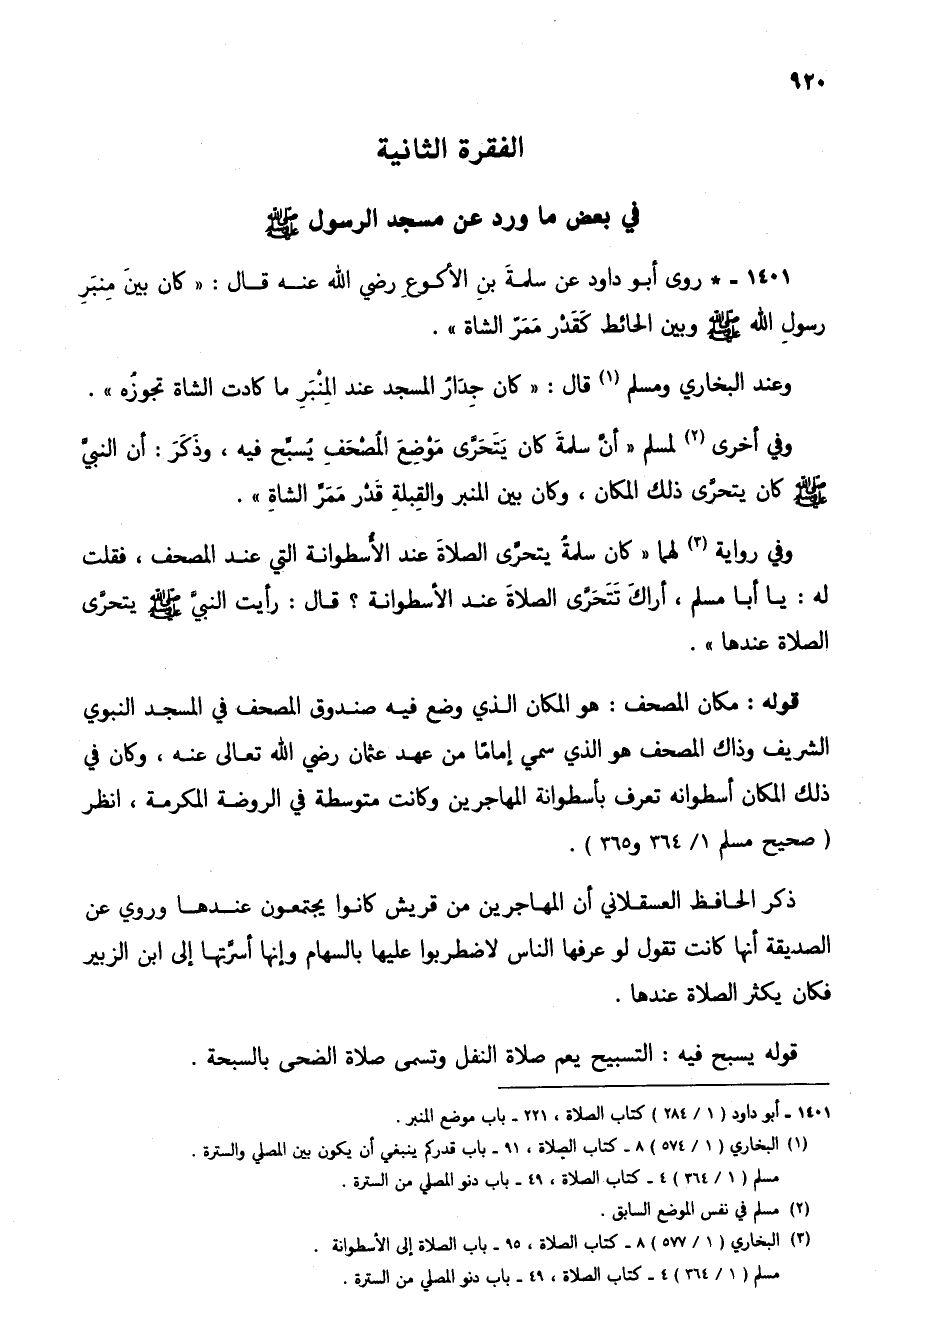 ٩٢٠
الفقرة الثانية
في بعض ما ورد عن مسجد الرسول ﷺ
١٤٠١ ـ * روى أبو داود عن سلمةَ بنِ الأكوعِ رضي الله عنه قال : « كان بينَ مِنبَرِ
رسولِ الله ﷺ وبين الحائط كَقَدْر مَمَرِّ الشاة » .
وعند البخاري ومسلم (١) قال : « كان جِدَارُ المسجد عند المِنْبَرِ ما كادت الشاة تجوزُه » .
وفي أخرى (٢) لمسلم « أنَّ سلمةَ كان يَتَحَرَّى مَوْضِعَ المُصْحَفِ يُسبِّح فيه ، وذَكَرَ : أن النبيَّ
ﷺ كان يتحرَّى ذلك المكان ، وكان بين المنبر والقِبلةِ قَدْر مَمَرِّ الشاةِ » .
وفي رواية (٣) لهما « كان سلمةُ يتحرَّى الصلاةَ عند الأُسطوانة التي عند المصحف ، فقلت
له : يا أبا مسلم ، أراكَ تَتَحَرَّى الصلاةَ عند الأسطوانة ؟ قال : رأيت النبيَّ ﷺ يتحرَّى
الصلاة عندها » .
قوله : مكان المصحف : هو المكان الذي وضع فيه صندوق المصحف في المسجد النبوي
الشريف وذاك المصحف هو الذي سمي إمامًا من عهد عثمان رضي الله تعالى عنه ، وكان في
ذلك المكان أسطوانه تعرف بأسطوانة المهاجرين وكانت متوسطة في الروضة المكرمة ، انظر
( صحيح مسلم ١/ ٣٦٤ و٣٦٥ ) .
ذكر الحافظ العسقلاني أن المهاجرين من قريش كانوا يجتمعون عندها وروي عن
الصديقة أنها كانت تقول لو عرفها الناس لاضطربوا عليها بالسهام وإنها أسرَّتها إلى ابن الزبير
فكان يكثر الصلاة عندها .
قوله يسبح فيه : التسبيح يعم صلاة النفل وتسمى صلاة الضحى بالسبحة .
١٤٠١ ـ أبو داود ( ١ / ٢٨٤ ) كتاب الصلاة ، ٢٢١ ـ باب موضع المنبر .
(١) البخاري ( ١ / ٥٧٤ ) ٨ ـ كتاب الصلاة ، ٩١ ـ باب قدركم ينبغي أن يكون بين المصلي والسترة .
مسلم ( ١ / ٣٦٤ ) ٤ ـ كتاب الصلاة ، ٤٩ ـ باب دنو المصلي من السترة .
(٢) مسلم في نفس الموضع السابق .
(٣) البخاري ( ١ / ٥٧٧ ) ٨ ـ كتاب الصلاة ، ٩٥ ـ باب الصلاة إلى الأسطوانة .
مسلم ( ١ / ٣٦٤ ) ٤ ـ كتاب الصلاة ، ٤٩ ـ باب دنو المصلي من السترة .